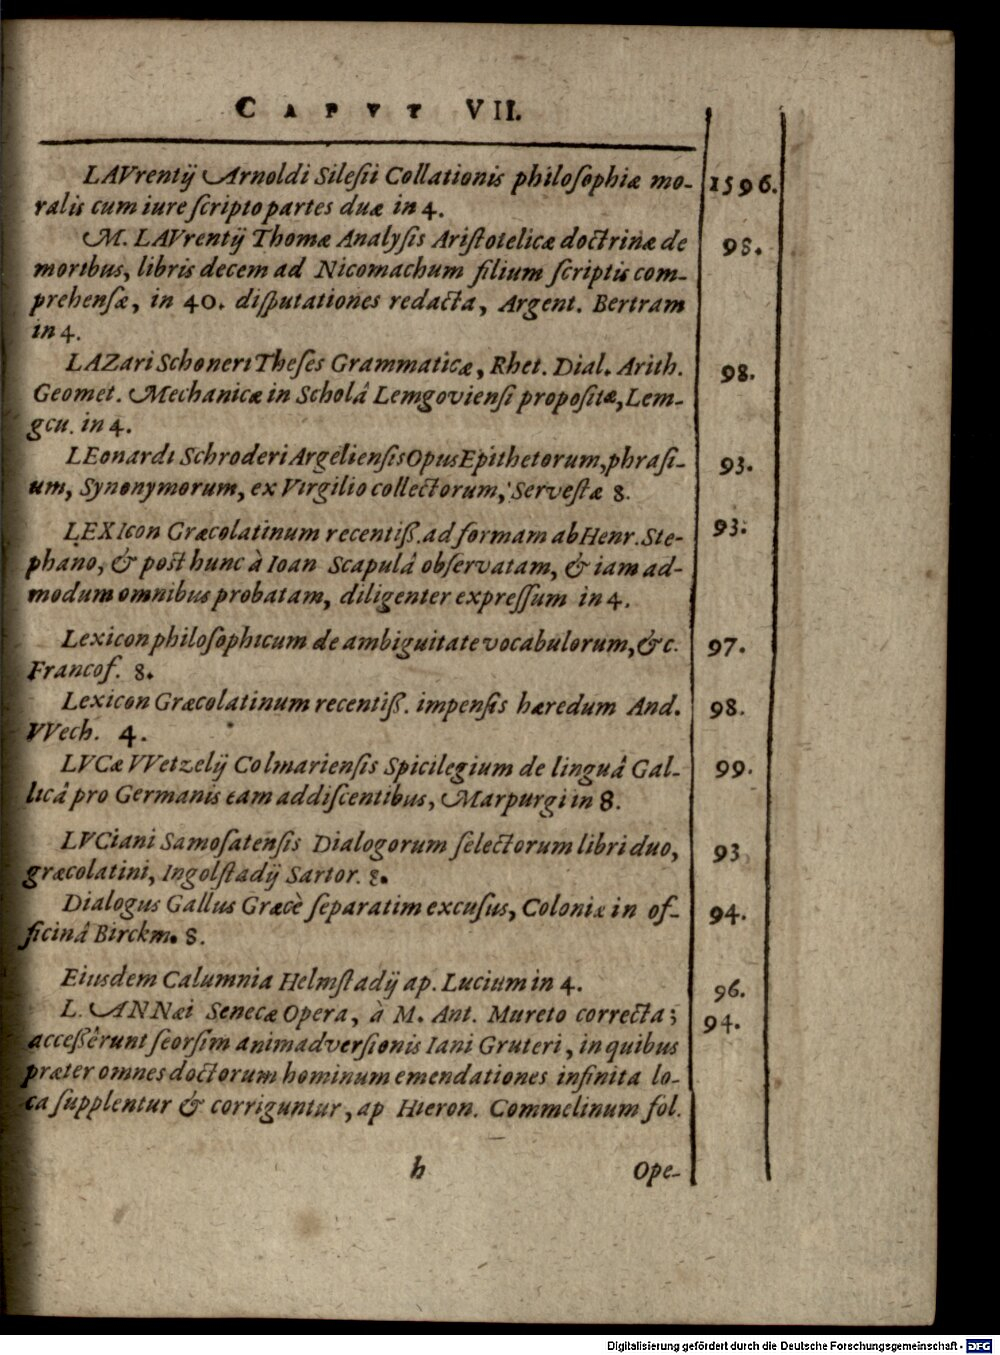 CAPVT VII.
LAVrentij Arnoldi Silesii Collationis philosophiæ mo- 1596.
ralis cum iure scripto partes duæ in 4.
M. LAVrentij Thomæ Analysis Aristotelicæ doctrinæ de 98.
moribus, libris decem ad Nicomachum filium scriptis com-
prehensæ, in 40. disputationes redacta, Argent. Bertram
in 4.
LAZari Schoneri Theses Grammaticæ, Rhet. Dial. Arith. 98.
Geomet. Mechanicæ in Scholâ Lemgoviensi propositæ, Lem-
gcu. in 4.
LEonardi Schroderi Argeliensis Opus Epithetorum, phrasi- 93.
um, Synonymorum, ex Virgilio collectorum, Servestæ 8.
LEXIcon Græcolatinum recentiß. ad formam ab Henr. Ste- 93.
phano, & post hunc à Ioan Scapulâ observatam, & iam ad-
modum omnibus probatam, diligenter expressum in 4.
Lexicon philosophicum de ambiguitate vocabulorum, &c. 97.
Francof. 8.
Lexicon Græcolatinum recentiß. impensis hæredum And. 98.
VVech. 4.
LVCæ VVetzelij Colmariensis Spicilegium de linguâ Gal- 99.
licâ pro Germanis eam addiscentibus, Marpurgi in 8.
LVCiani Samosatensis Dialogorum selectorum libri duo, 93
græcolatini, Ingolstadij Sartor. 8.
Dialogus Gallus Græcè separatim excusus, Coloniæ in of- 94.
ficinâ Birckm. 8.
Eiusdem Calumnia Helmstadij ap. Lucium in 4. 96.
L. ANNæi Senecæ Opera, à M. Ant. Mureto correcta; 94.
acceßêrunt seorsim animadversionis Iani Gruteri, in quibus
præter omnes doctorum hominum emendationes infinita lo-
ca supplentur & corriguntur, ap Hieron. Commelinum fol.
h Ope-
Digitalisierung gefördert durch die Deutsche Forschungsgemeinschaft - DFG